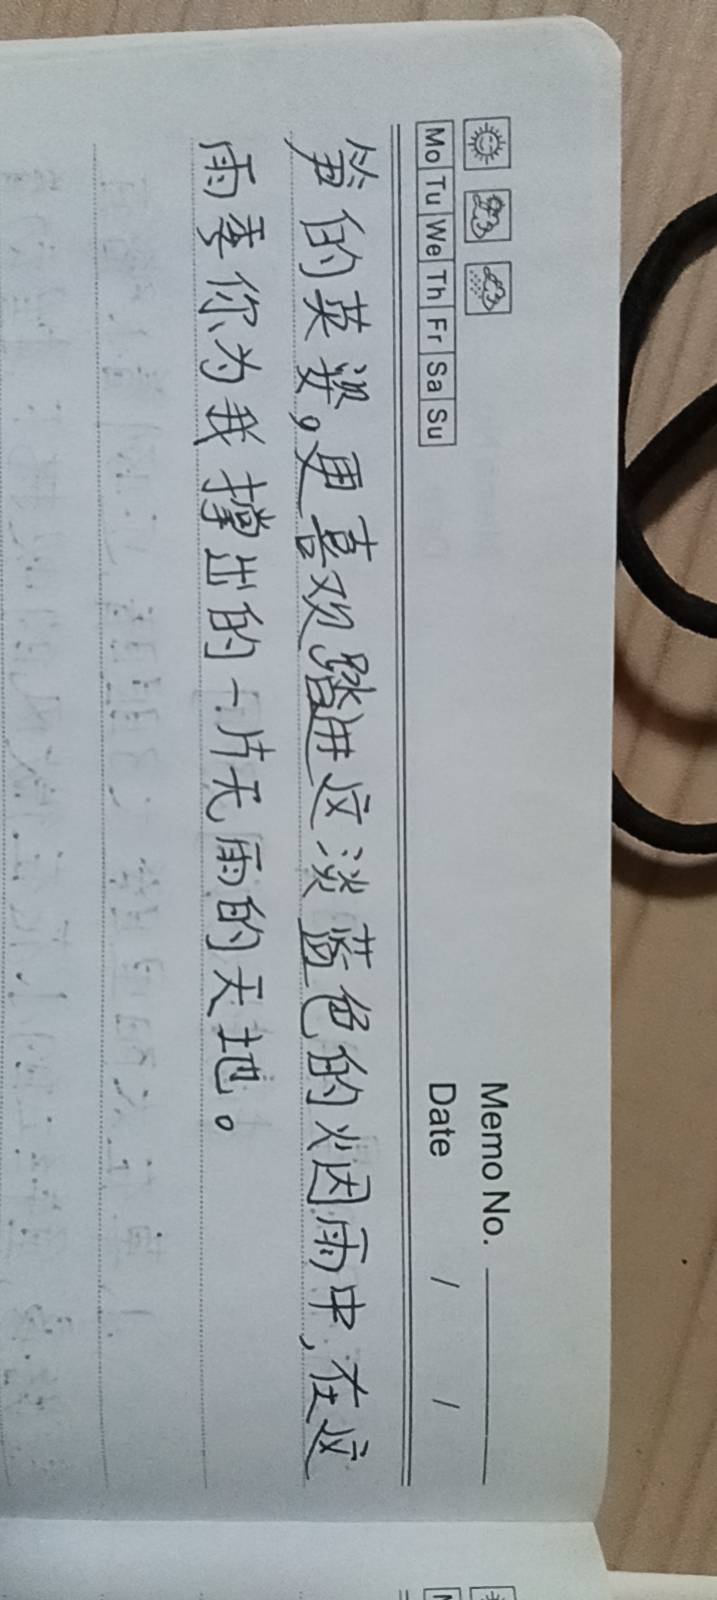 Memo No.
Mo Tu We Th Fr Sa Su
Date / /
笋的英姿,更喜欢踏进这淡蓝色的烟雨中,在这
雨季你为我撑出的一片无雨的天地。